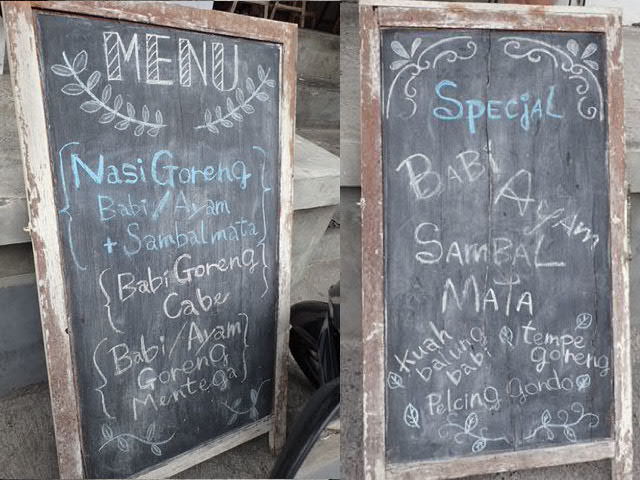 MENU
Nasi Goreng
Babi/Ayam
+ Sambal mata
Babi Goreng
Cabe
Babi/Ayam
Goreng
Mentega
Special
BaBi
Ayam
SAMBAL
MATA
Kuah
balung
babi
tempe
goreng
Pelcing gondo